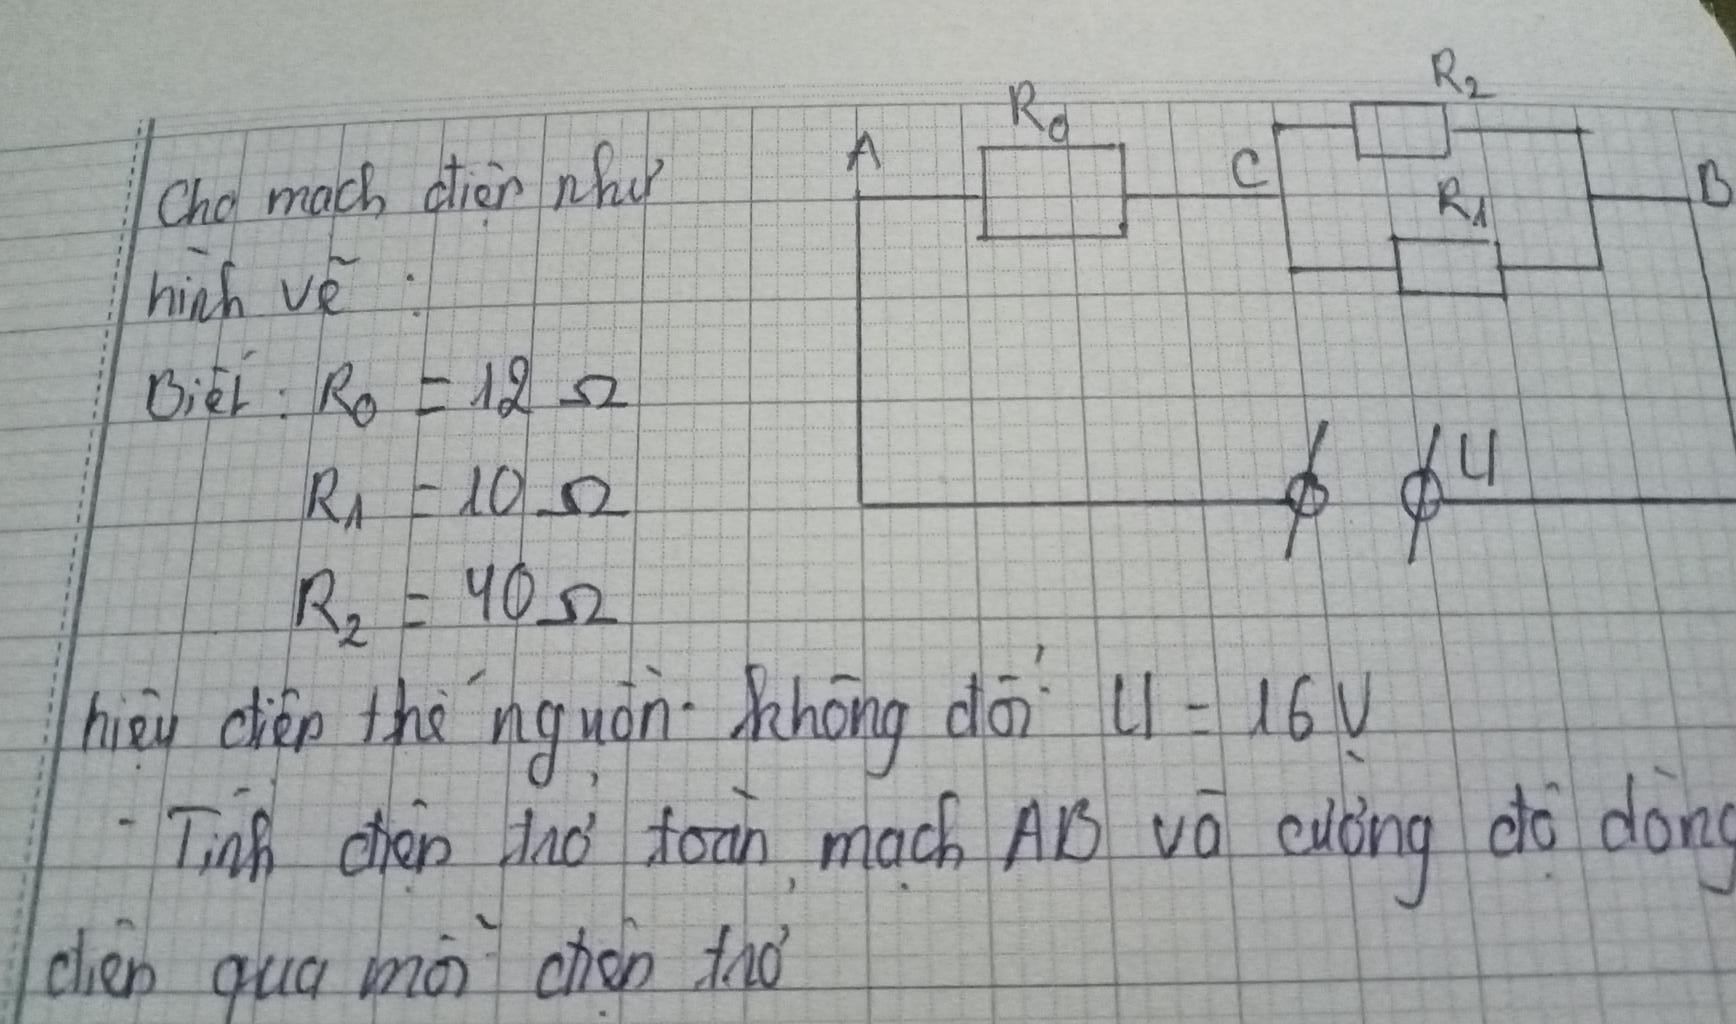 Cho mạch điện như
hình vẽ :
Biết : R₀ = 12 Ω
R₁ = 10 Ω
R₂ = 40 Ω
hiệu điện thế nguồn không đổi U = 16 V
- Tính điện trở toàn mạch AB và cường độ dòng
điện qua mỗi điện trở
A
R₀
C
R₂
R₁
B
U